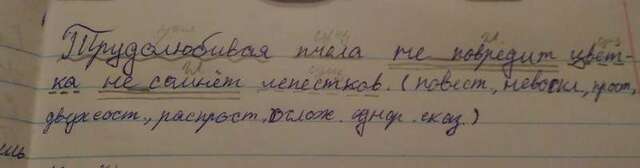 сущ. сущ. гл. сущ.
Трудолюбивая пчела не повредит цвет-
гл. сущ.
ка не сомнёт лепестков. (повест., невоскл., прост.,
двухсост., распрост., ослож. однор. сказ.)
ль